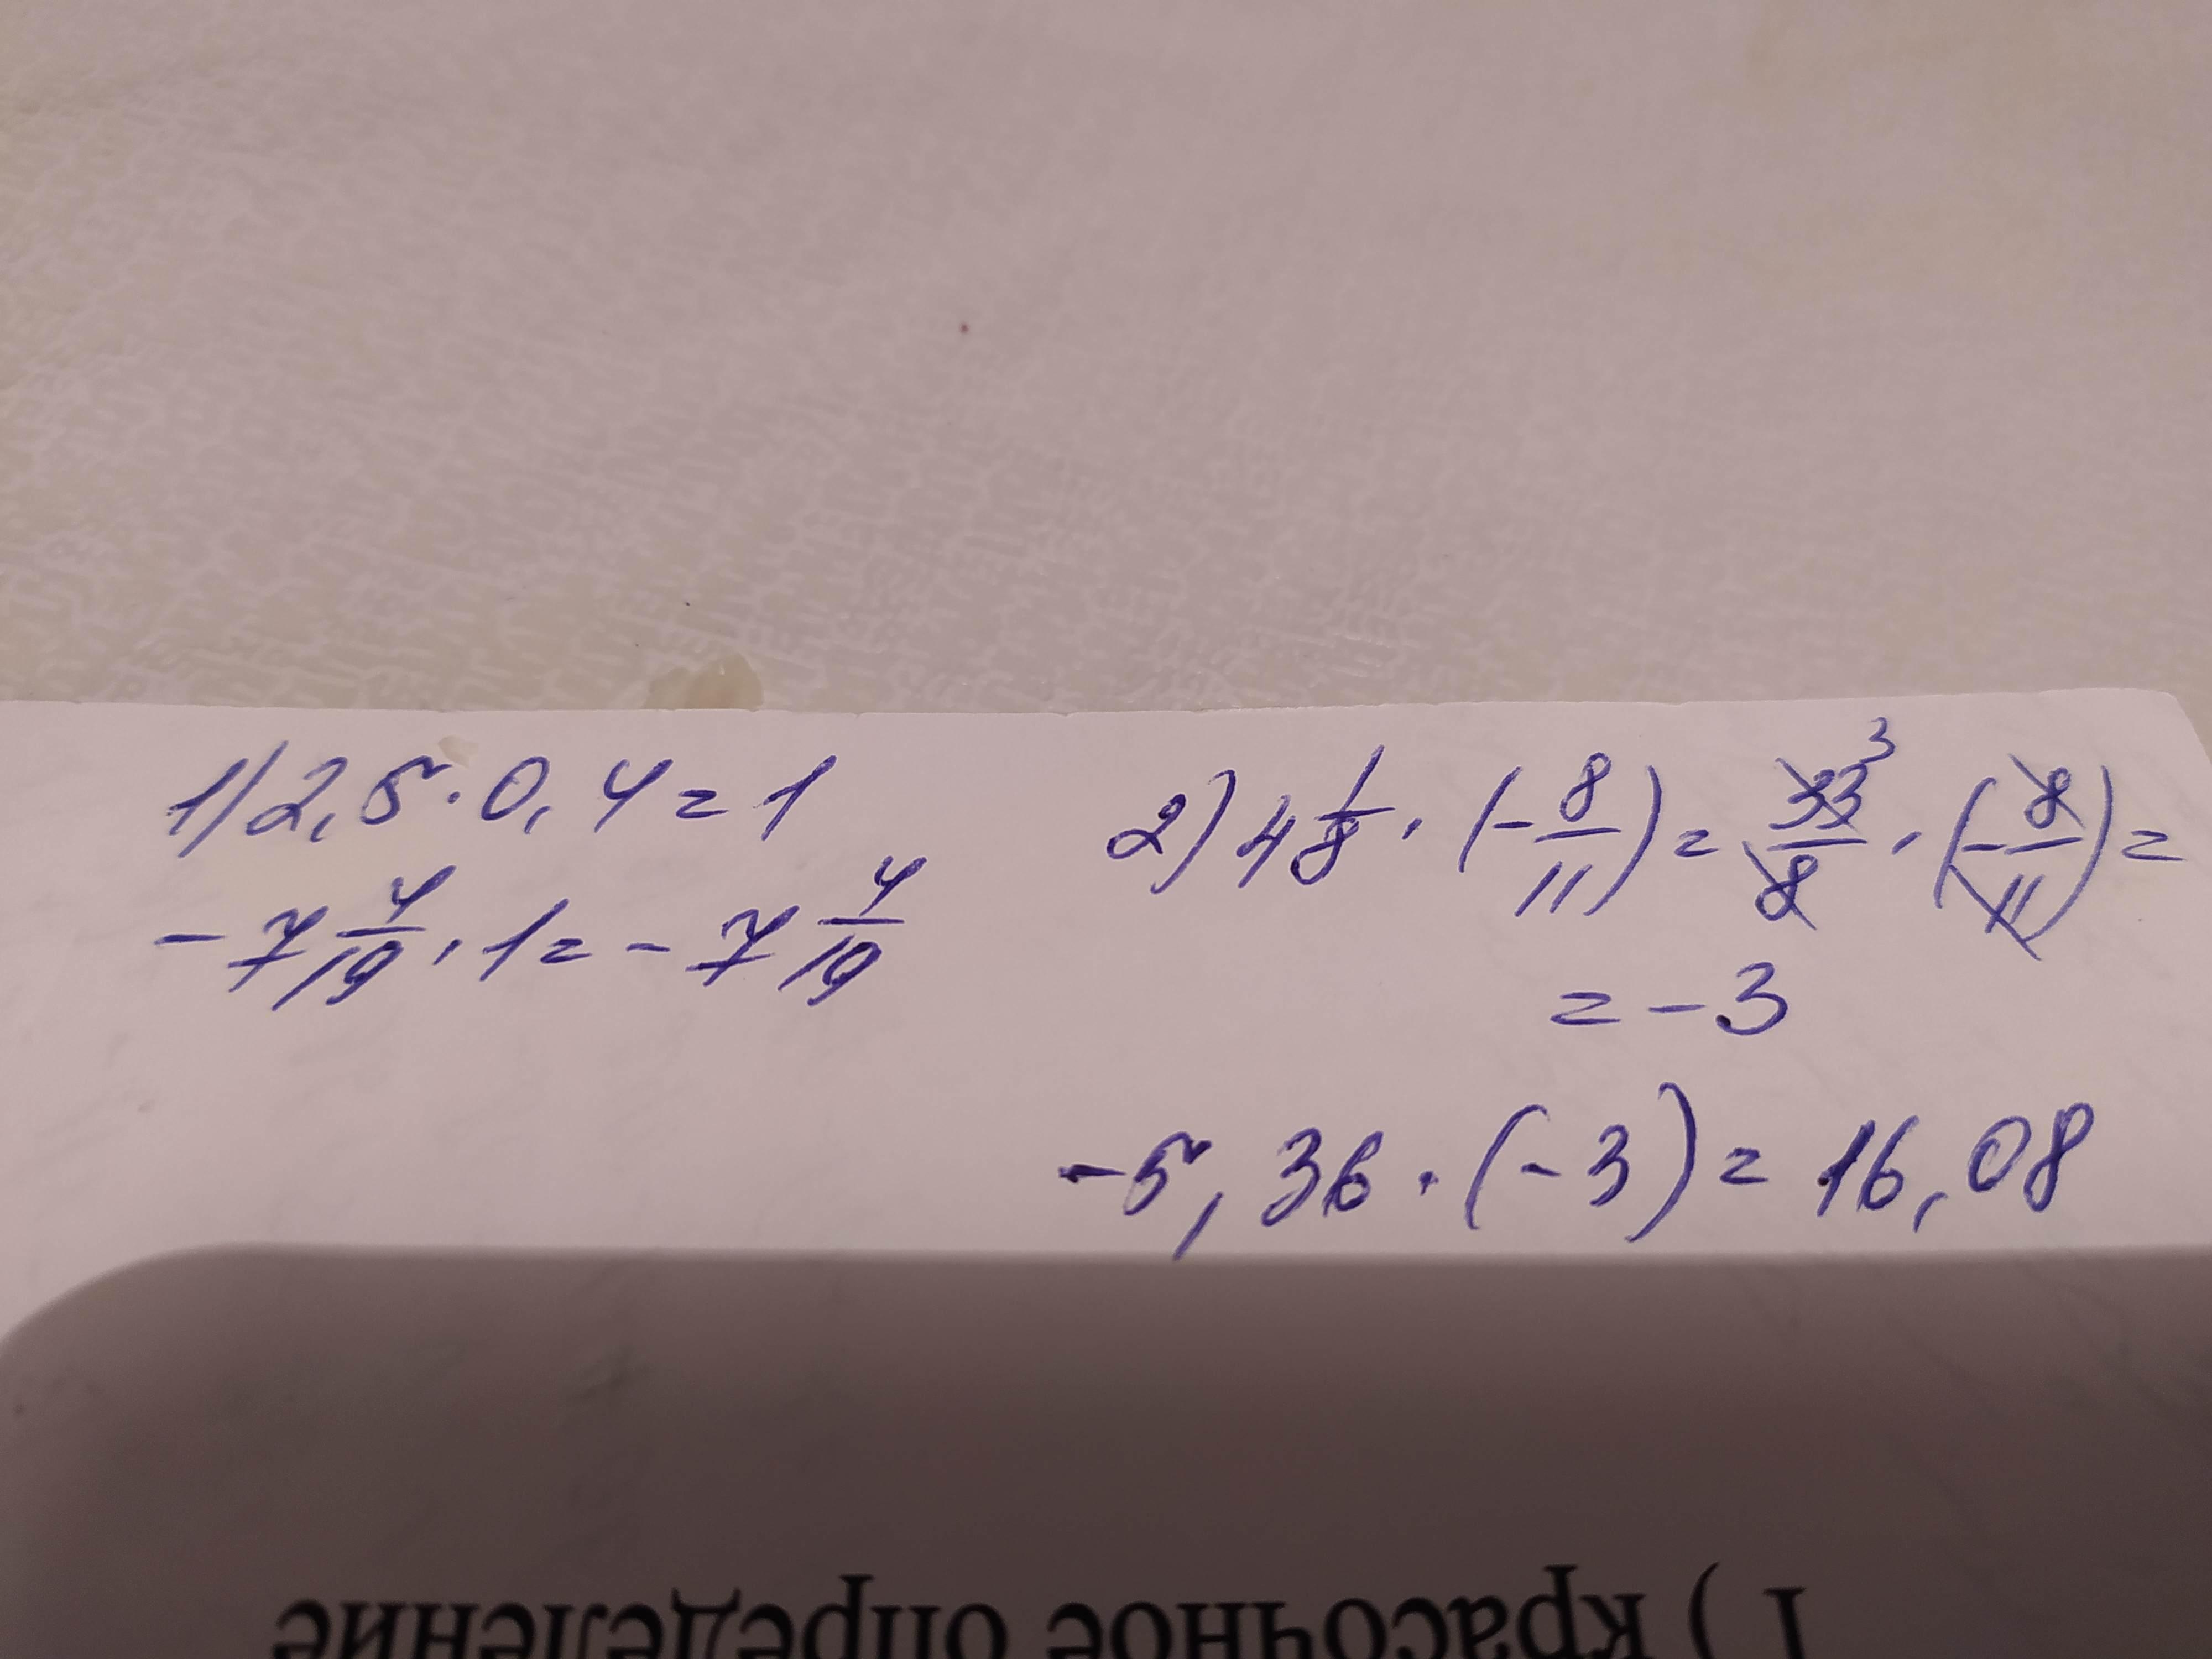 1) 2,5 · 0,4 = 1
-7 4/19 · 1 = -7 4/19
2) 4 1/8 · (-8/11) = 33/8 · (-8/11) =
3
= -3
-5,36 · (-3) = 16,08
1) красочное определение